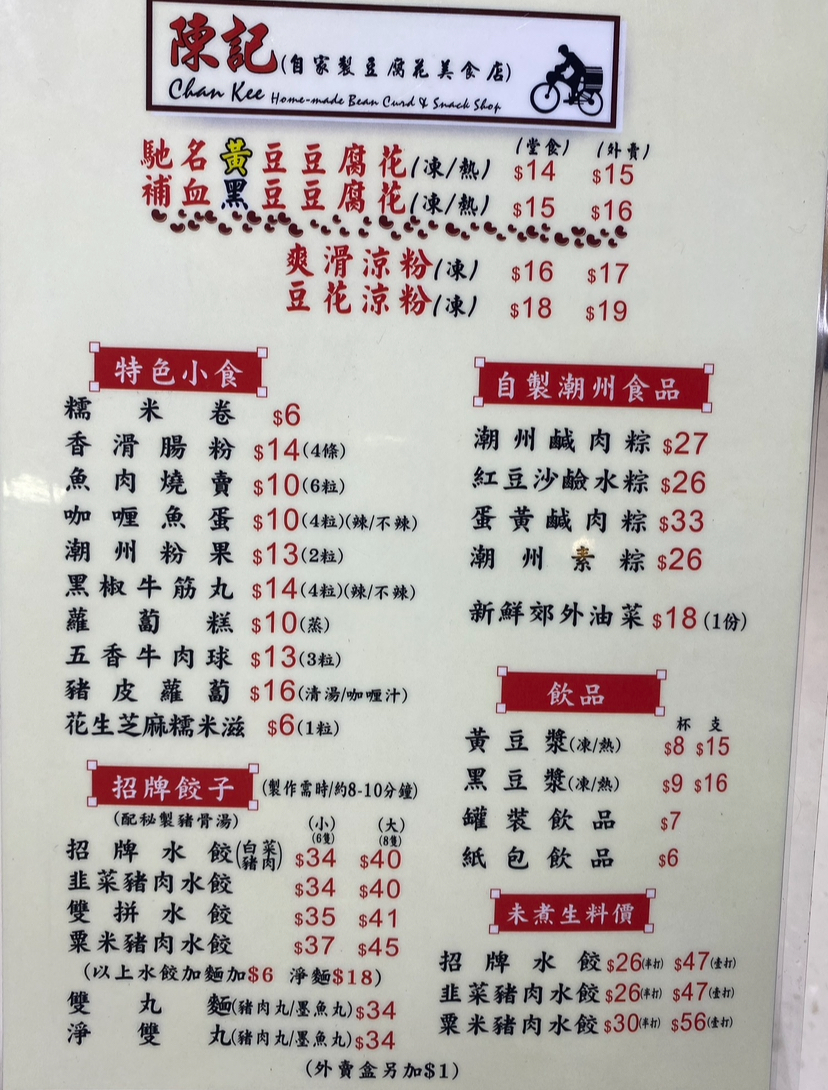 陳記(自家製豆腐花美食店)
Chan Kee Home-made Bean Curd & Snack Shop
(堂食) (外賣)
馳名黃豆豆腐花(凍/熱) $14 $15
補血黑豆豆腐花(凍/熱) $15 $16
爽滑涼粉(凍) $16 $17
豆花涼粉(凍) $18 $19
特色小食
糯米卷 $6
香滑腸粉 $14(4條)
魚肉燒賣 $10(6粒)
咖喱魚蛋 $10(4粒)(辣/不辣)
潮州粉果 $13(2粒)
黑椒牛筋丸 $14(4粒)(辣/不辣)
蘿蔔糕 $10(蒸)
五香牛肉球 $13(3粒)
豬皮蘿蔔 $16(清湯/咖喱汁)
花生芝麻糯米滋 $6(1粒)
招牌餃子(製作需時/約8-10分鐘)
(配秘製豬骨湯) (小) (大)
(6隻) (8隻)
招牌水餃(白菜豬肉) $34 $40
韭菜豬肉水餃 $34 $40
雙拼水餃 $35 $41
粟米豬肉水餃 $37 $45
(以上水餃加麵加$6 淨麵$18)
雙丸麵(豬肉丸/墨魚丸) $34
淨雙丸(豬肉丸/墨魚丸) $34
自製潮州食品
潮州鹹肉粽 $27
紅豆沙鹼水粽 $26
蛋黃鹹肉粽 $33
潮州素粽 $26
新鮮郊外油菜 $18(1份)
飲品
杯 支
黃豆漿(凍/熱) $8 $15
黑豆漿(凍/熱) $9 $16
罐裝飲品 $7
紙包飲品 $6
未煮生料價
招牌水餃 $26(半打) $47(壹打)
韭菜豬肉水餃 $26(半打) $47(壹打)
粟米豬肉水餃 $30(半打) $56(壹打)
(外賣盒另加$1)